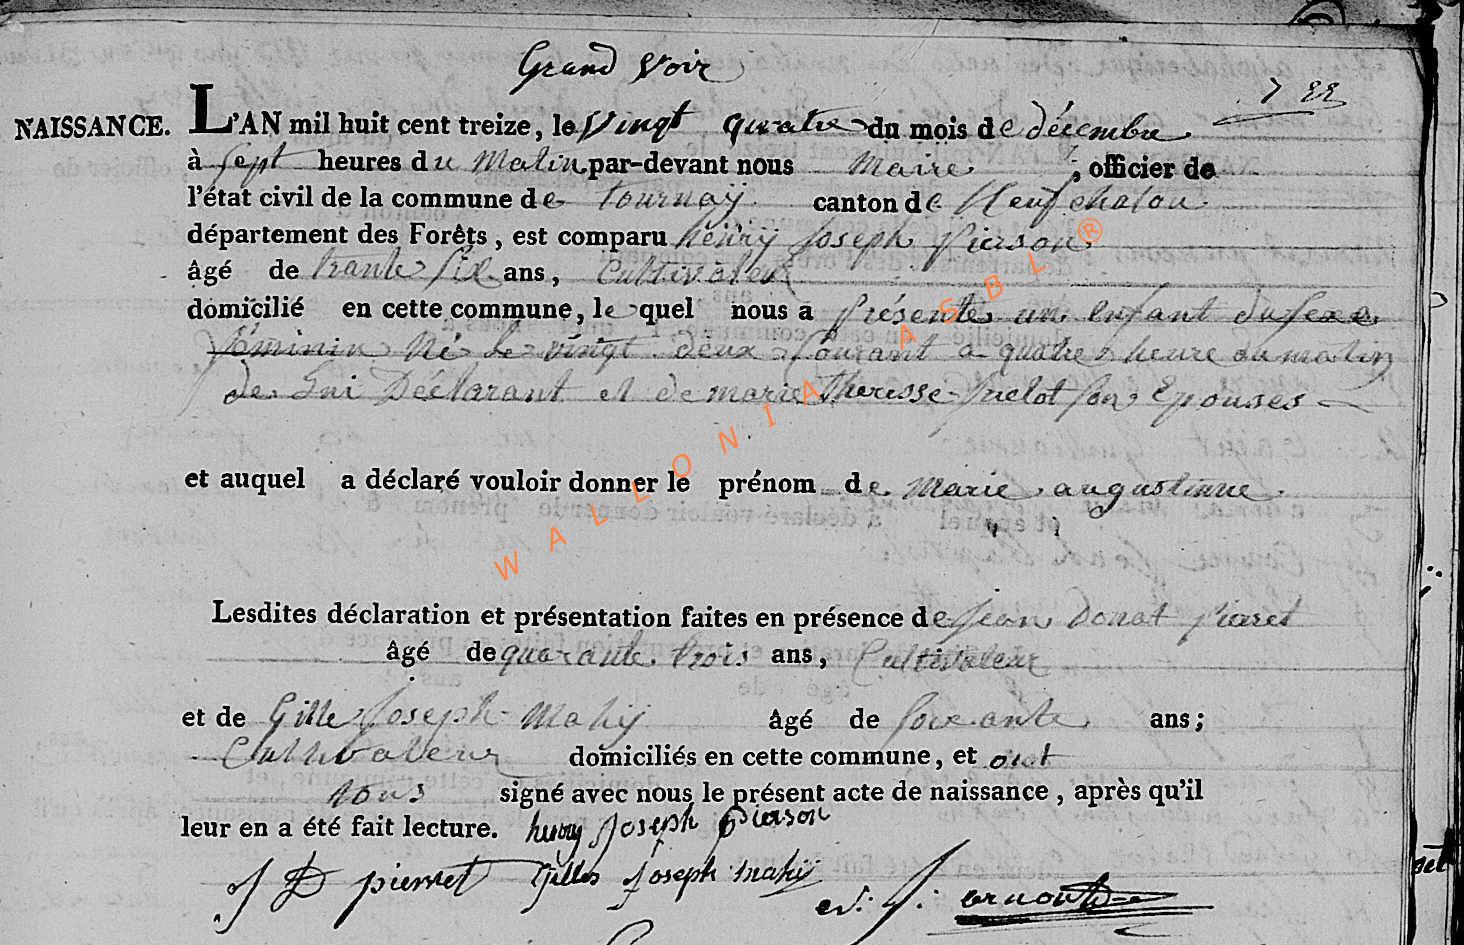 Grand Voir
722
NAISSANCE. L'AN mil huit cent treize, le Vingt quatre du mois de décembre
à sept heures du Matin par-devant nous Maire, officier de
l'état civil de la commune de tournay canton de Neufchatau
département des Forêts, est comparu henry Joseph Pierson
âgé de trante six ans, Cultivateur
domicilié en cette commune, le quel nous a présenté un enfant du sexe
féminin Né le vingt deux Courant a quatre heure du matin
de Lui Déclarant et de marie Theresse son Epouses
et auquel a déclaré vouloir donner le prénom de Marie augustinne.
Lesdites déclaration et présentation faites en présence de Jean Donat Pierret
âgé de quarante trois ans, Cultivateur
et de Gille Joseph Mahy âgé de soixante ans;
Cultivateur domiciliés en cette commune, et ont
tous signé avec nous le présent acte de naissance, après qu'il
leur en a été fait lecture. henry Joseph pierson
J D pierret Gilles Joseph mahy
WALLONIA ASBL ®